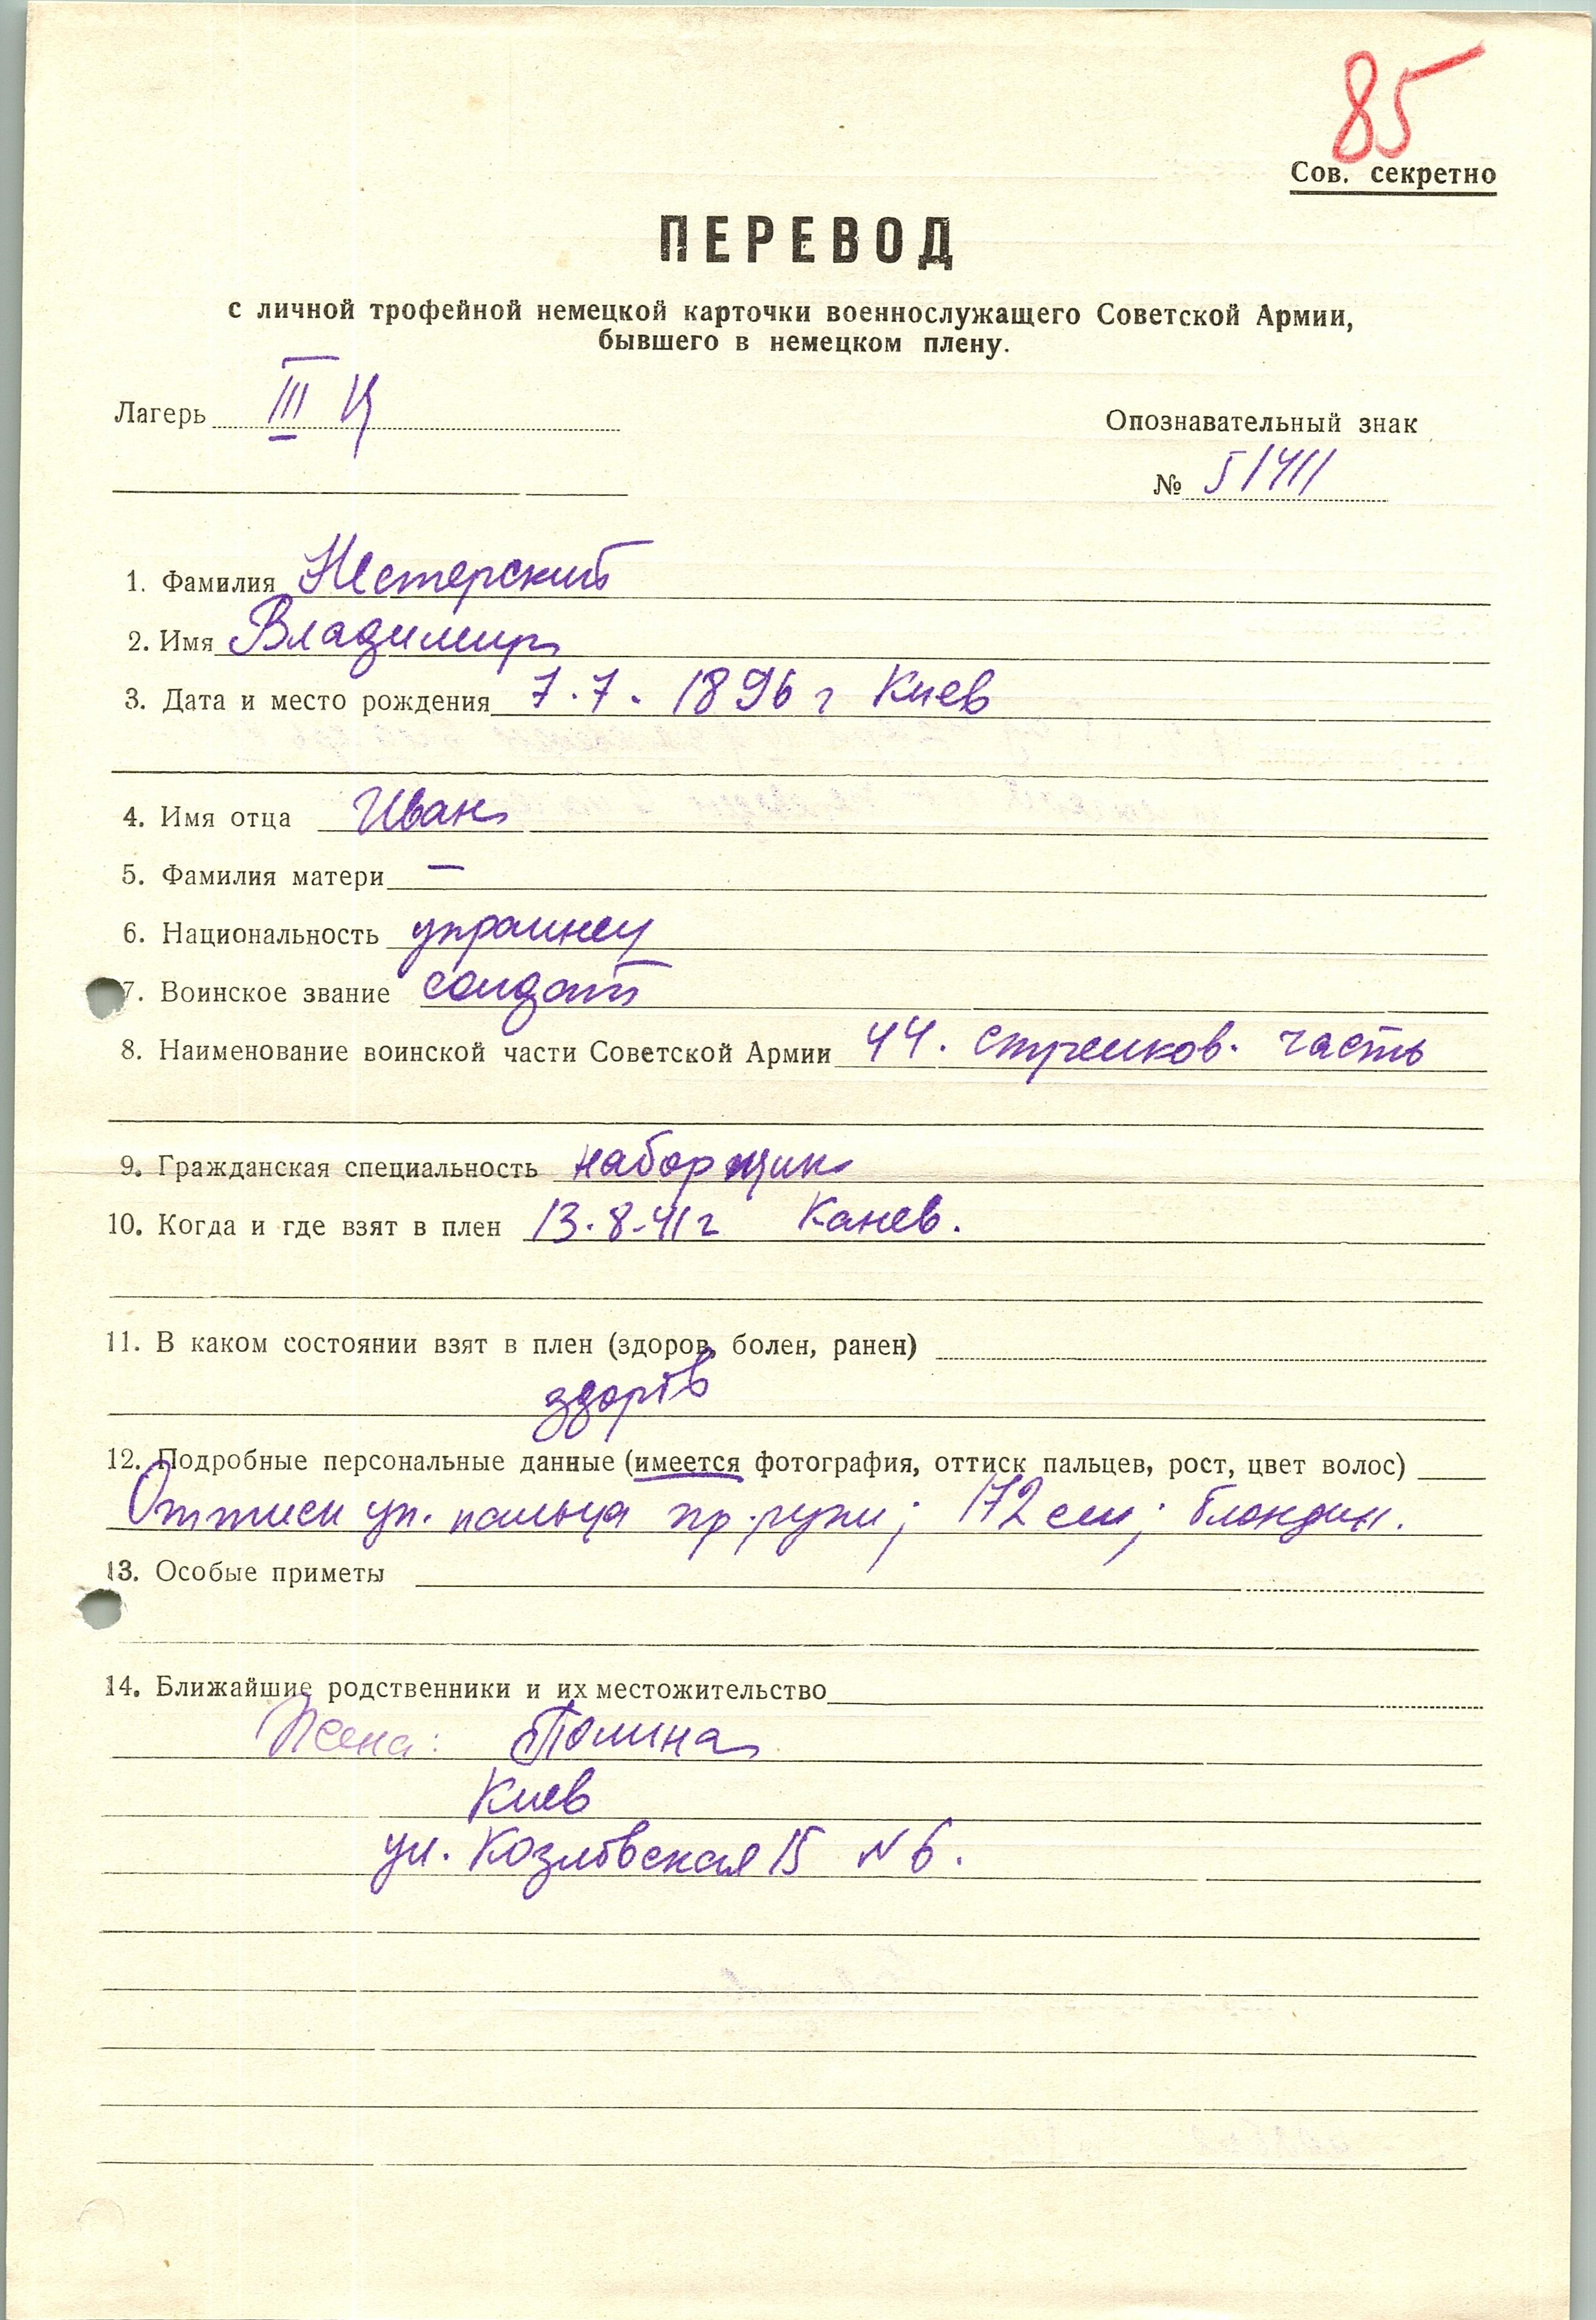 85
Сов. секретно
ПЕРЕВОД
с личной трофейной немецкой карточки военнослужащего Советской Армии,
бывшего в немецком плену.
Лагерь III
Опознавательный знак
№ 51411
1. Фамилия Нестерский
2. Имя Владимир
3. Дата и место рождения 7.7. 1896 г Киев
4. Имя отца Иван
5. Фамилия матери —
6. Национальность украинец
7. Воинское звание солдат
8. Наименование воинской части Советской Армии 44. стрелков. часть
9. Гражданская специальность наборщик
10. Когда и где взят в плен 13.8.41 г Канев.
11. В каком состоянии взят в плен (здоров, болен, ранен)
здоров
12. Подробные персональные данные (имеется фотография, оттиск пальцев, рост, цвет волос)
Оттиск ук. пальца пр. руки; 172 см; блондин.
13. Особые приметы
14. Ближайшие родственники и их местожительство
Жена: Полина
Киев
ул. Козловская 15 N 6.